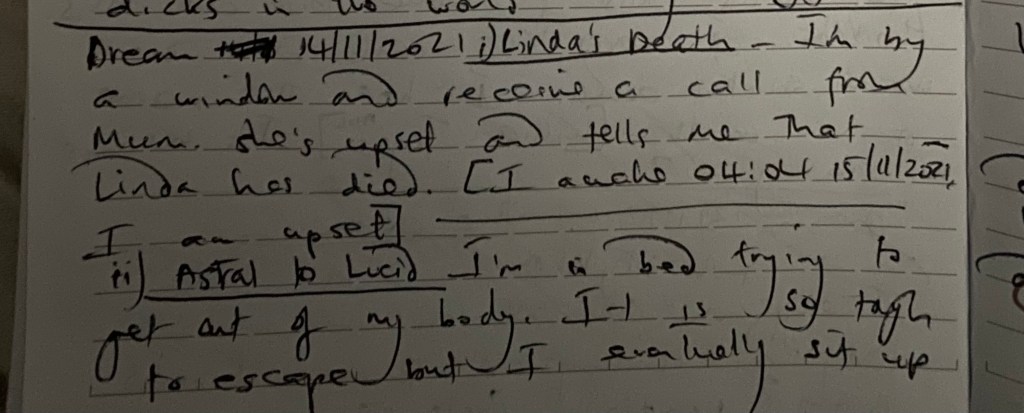 dicks in the
Dream 14/11/2021 i) Linda's Death - I'm by
a window and receive a call from
Mum. She's upset and tells me That
Linda has died. [I awake 04:04 15/11/2021,
I am upset]
ii) Astral to Lucid I'm in bed trying to
get out of my body. It is so tough
to escape but I eventually sit up